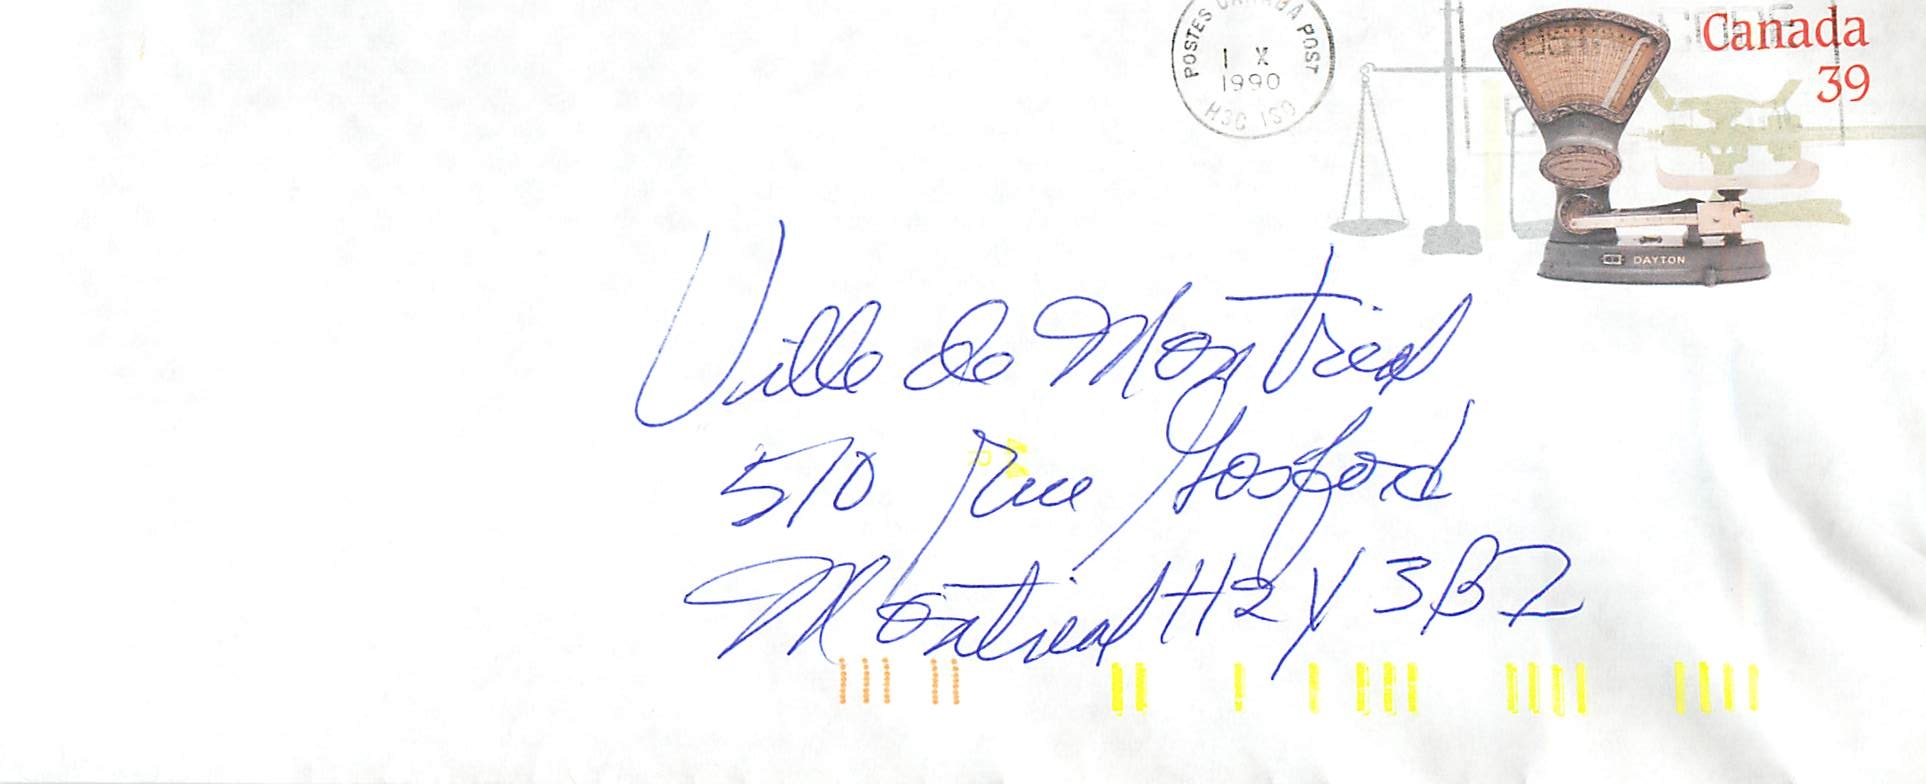 POSTES CANADA POST
1 X
1990
H3C 1S0
CODE
Canada
39
DAYTON
Ville de Montreal
510 Rue Gosford
Montreal H2Y 3B2